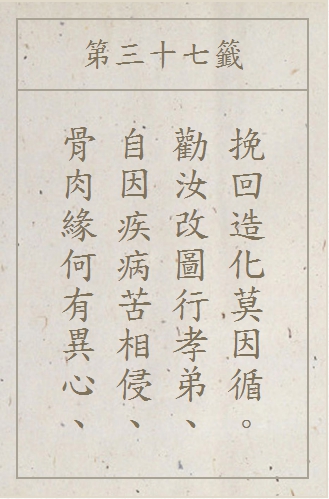 第三十七籤
骨肉緣何有異心、
自因疾病苦相侵、
勸汝改圖行孝弟、
挽回造化莫因循。